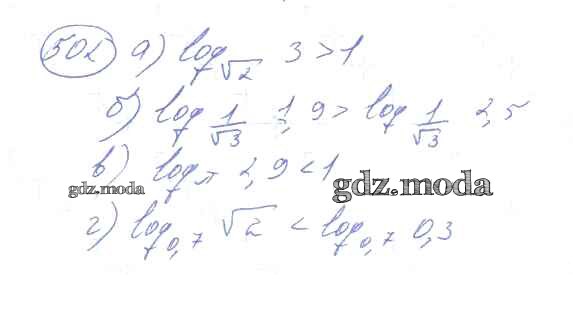 502 а) log√2 3 > 1
б) log1/√3 1,9 > log1/√3 2,5
в) logπ 2,9 < 1
gdz.moda
gdz.moda
г) log0,7 √2 < log0,7 0,3